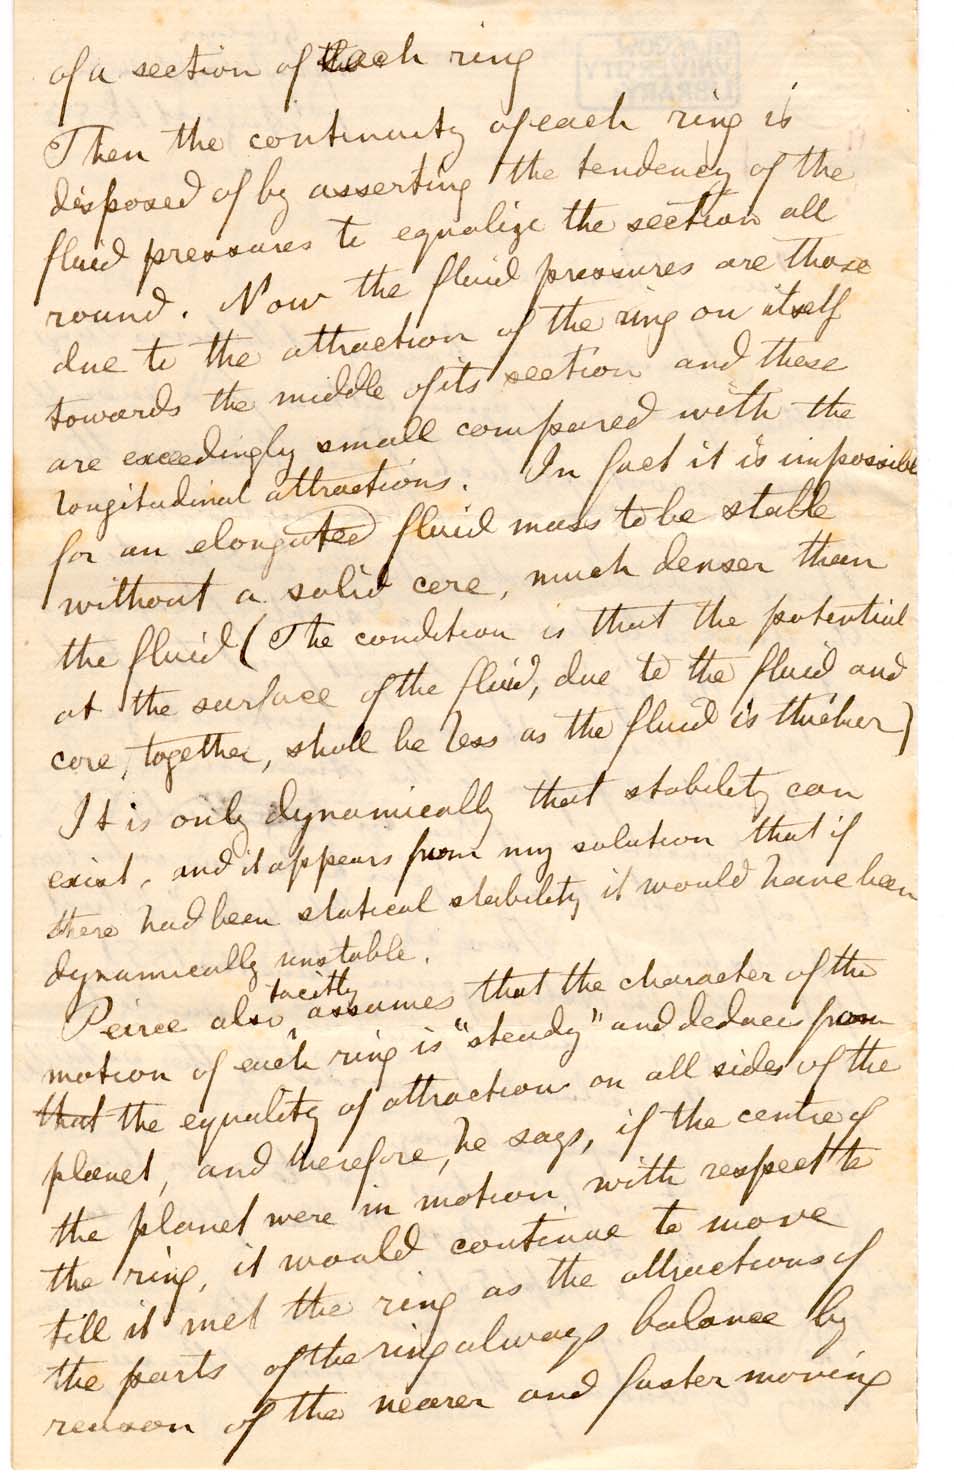 of a section of each ring
Then the continuity of each ring is
disposed of by asserting the tendency of the
fluid pressures to equalize the section all
round. Now the fluid pressures are those
due to the attraction of the ring on itself
towards the middle of its section and these
are exceedingly small compared with the
longitudinal attractions. In fact it is impossible
for an elongated fluid mass to be stable
without a solid core, much denser than
the fluid (The condition is that the potential
at the surface of the fluid, due to the fluid and
core, together, shall be less as the fluid is thicker)
It is only dynamically that stability can
exist, and it appears from my solution that if
there had been statical stability it would have been
dynamically unstable.
Peirce also tacitly assumes that the character of the
motion of each ring is "steady" and deduces from
that the equality of attraction on all sides of the
planet, and therefore, he says, if the centre of
the planet were in motion with respect to
the ring, it would continue to move
till it met the ring as the attractions of
the parts of the ring always balance by
reason of the nearer and faster moving
GLASGOW
UNIVERSITY
LIBRARY